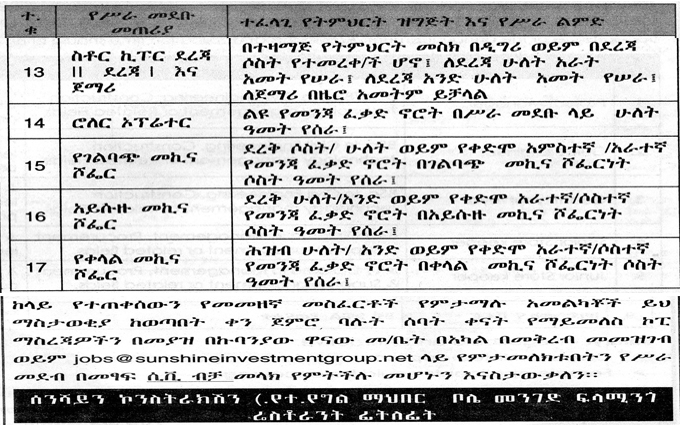 ተ.
ቁ
የሥራ መደቡ
መጠሪያ
ተፈላጊ የትምህርት ዝግጅት እና የሥራ ልምድ
13
ስቶር ኪፐር ደረጃ
II ደረጃ I እና
ጀማሪ
በተዛማጅ የትምህርት መስክ በዲግሪ ወይም በደረጃ
ሶስት የተመረቀ/ች ሆኖ፤ ለደረጃ ሁለት አራት
አመት የሠራ፤ ለደረጃ አንድ ሁለት አመት የሠራ፤
ለጀማሪ በዜሮ አመትም ይቻላል
14
ሮለር ኦፕሬተር
ልዩ የመንጃ ፈቃድ ኖሮት በሥራ መደቡ ላይ ሁለት
ዓመት የሰራ፤
15
የገልባጭ መኪና
ሾፌር
ደረቅ ሶስት/ ሁለት ወይም የቀድሞ አምስተኛ /አራተኛ
የመንጃ ፈቃድ ኖሮት በገልባጭ መኪና ሾፌርነት
ሶስት ዓመት የሰራ፤
16
አይሱዙ መኪና
ሾፌር
ደረቅ ሁለት/አንድ ወይም የቀድሞ አራተኛ/ሶስተኛ
የመንጃ ፈቃድ ኖሮት በአይሱዙ መኪና ሾፌርነት
ሶስት ዓመት የሰራ፤
17
የቀላል መኪና
ሾፌር
ሕዝብ ሁለት/ አንድ ወይም የቀድሞ አራተኛ/ሶስተኛ
የመንጃ ፈቃድ ኖሮት በቀላል መኪና ሾፌርነት ሶስት
ዓመት የሰራ፤
ከላይ የተጠቀሰውን የመመዘኛ መስፈርቶች የምታማሉ አመልካቾች ይህ
ማስታወቂያ ከወጣበት ቀን ጀምሮ ባሉት ሰባት ቀናት የማይመለስ ኮፒ
ማስረጃዎችን በመያዝ በኩባንያው ዋናው መ/ቤት በአካል በመቅረብ መመዝገብ
ወይም jobs@sunshineinvestmentgroup.net ላይ የምታመለክቱበትን የሥራ
መደብ በመፃፍ ሲቪ ብቻ መላክ የምትችሉ መሆኑን እናስታውቃለን፡፡
ሰንሻይን ኮንስትራክሽን (.የተ.የግል ማህበር ቦሌ መንገድ ፍላሚንጎ
ሬስቶራንት ፊትለፊት